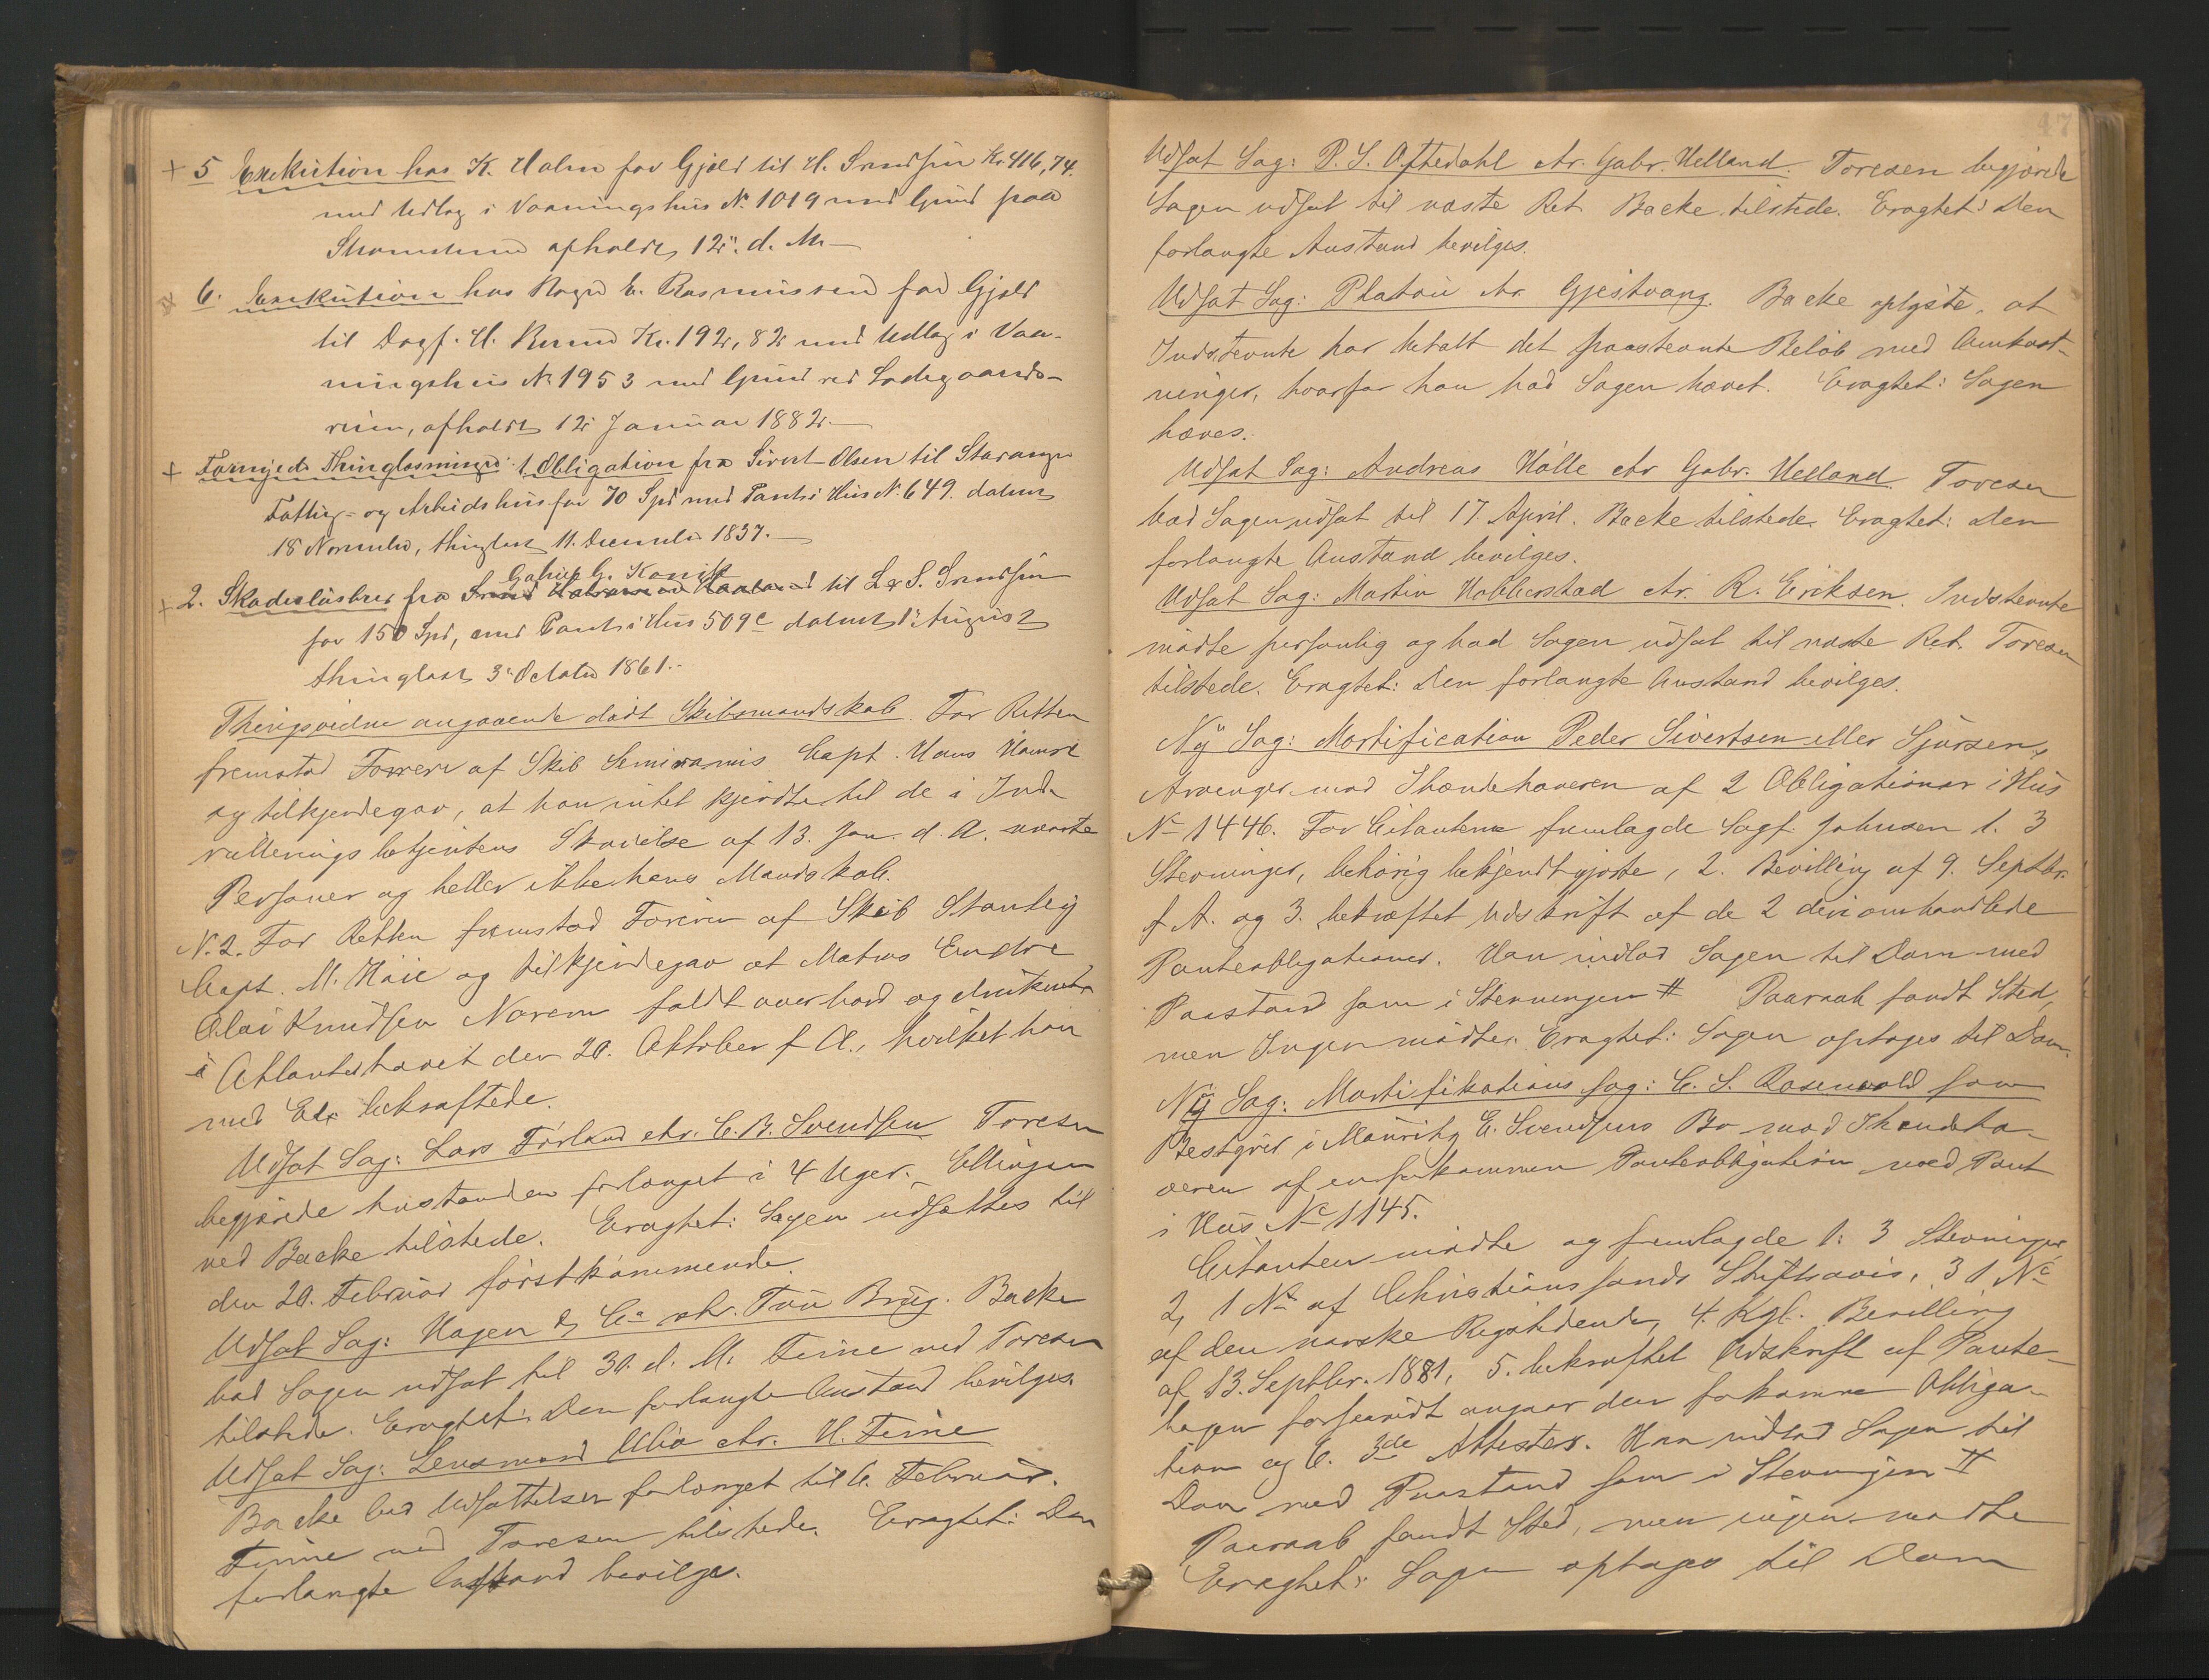 + 5 Exekution hos K. Holm for Gjæld til H. Svendsen Kr. 416,74.
med Udlæg i Vaaningshus No 1019 med Grund paa
Strømmen afholdt 12te d. M.
6. Exekution hos Rasmussen for Gjæld
til Dagf. H. Kr. 192,82 med Udlæg i Vaa-
ningshus No 1953 med Grund ved Ladegaards-
veien, afholdt 12 Januar 1882.
+ Fornyede Thinglæsninger: 1 Obligation fra Sivert Olsen til Stavanger
Fattig- og Arbeidshus for 70 Spd med Pant i Hus No 649. dateret
18 November, thinglæst 11. December 1837.
Gabriel G. Kanik
+ 2. Skadesløsbrev fra til L. S. Svendsen
for 150 Spd, med Pant i Hus 509c dateret 1te August
thinglæst 3de October 1861.
Thingsvidne angaaende dødt Skibsmandskab. For Retten
fremstod Føreren af Skib Semiramis Capt. Hans Hamre
og tilkjendegav, at han intet kjendte til de i Ind-
rulleringsbetjentens Skrivelse af 13. Jan. d. A. nævnte
Personer og heller ikke hans Mandskab.
N. 2. For Retten fremstod Føreren af Skib Stanley
Capt. M. Høie og tilkjendegav at Matros Endre
Olai Knudsen Norem faldt overbord og druknede
i Atlanterhavet den 20. Oktober f A., hvilket han
med Ed bekræftede.
Udsat Sag: Lars Tørland ctr. C. B. Svendsen Toresen
begjærede Anstanden forlænget i 4 Uger. Ellingsen
ved Backe tilstede. Eragtet: Sagen udsættes til
den 20. Februar førstkommende.
Udsat Sag: Hagen & Co ctr. Tou Brug. Backe
bad Sagen udsat til 30. d. M. Feine ved Toresen
tilstede. Eragtet: Den forlangte Anstand bevilges.
Udsat Sag: Lensmand ctr. H. Feine
Backe bad Udsættelsen forlænget til 6. Februar.
Feine ved Toresen tilstede. Eragtet: Den
forlangte Anstand bevilges.
47
Udsat Sag: P. S. Aftedahl ctr. Gabr. Helland. Toresen begjærede
Sagen udsat til næste Ret. Backe tilstede. Eragtet: Den
forlangte Anstand bevilges.
Udsat Sag: Platou ctr. Gjestvang. Backe oplyste, at
Indstevnte har betalt det paastevnte Beløb med Omkost-
ninger, hvorfor han bad Sagen hævet. Eragtet: Sagen
hæves.
Udsat Sag: Andreas Halle ctr Gabr. Helland. Toresen
bad Sagen udsat til 17. April. Backe tilstede. Eragtet: Den
forlangte Anstand bevilges.
Udsat Sag: Martin Hobberstad ctr. R. Eriksen. Indstevnte
mødte personlig og bad Sagen udsat til næste Ret. Toresen
tilstede. Eragtet: Den forlangte Anstand bevilges.
Ny Sag: Mortification Peder Sivertsen eller Sjursens
Arvinger mod Ihændehaveren af 2 Obligationer i Hus
No 1446. For Citanterne fremlagde Sagf. Johnsen 1. 3
Stevninger, behørig bekjendtgjorte, 2. Bevilling af 9. Septbr.
f A. og 3. bekræftet Udskrift af de 2 deri omhandlede
Panteobligationer. Han indlod Sagen til Dom med
Paastand som i Stevningen # Paaraab fandt Sted,
men Ingen mødte. Eragtet: Sagen optages til Dom.
Ny Sag: Mortifikations sag: C. S. Rosenvold som
Bestyrer i Mauritz E. Svendsens Bo mod Ihændeha-
veren af en forkommen Panteobligation med Pant
i Hus No 1145.
Citanten mødte og fremlagde 1. 3 Stevninger,
2, 1 No af Christianssands Stiftsavis, 3 1 No
af den norske Rigstidende, 4. Kgl. Bevilling
af 13. Septbr. 1881, 5. bekræftet Udskrift af Pante-
bogen forsaavidt angaar den forkomne Obliga-
tion og 6. 3de Attester. Han indlod Sagen til
Dom med Paastand som i Stevningen #
Paaraab fandt Sted, men ingen mødte
Eragtet: Sagen optages til Dom